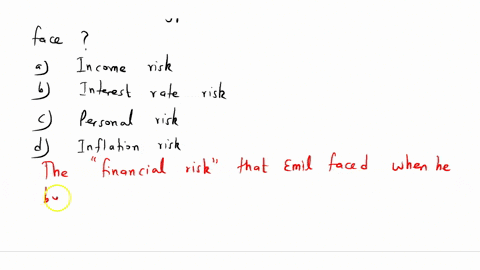 face ?
a) Income risk
b) Interest rate risk
c) Personal risk
d) Inflation risk
The "financial risk" that Emil faced when he